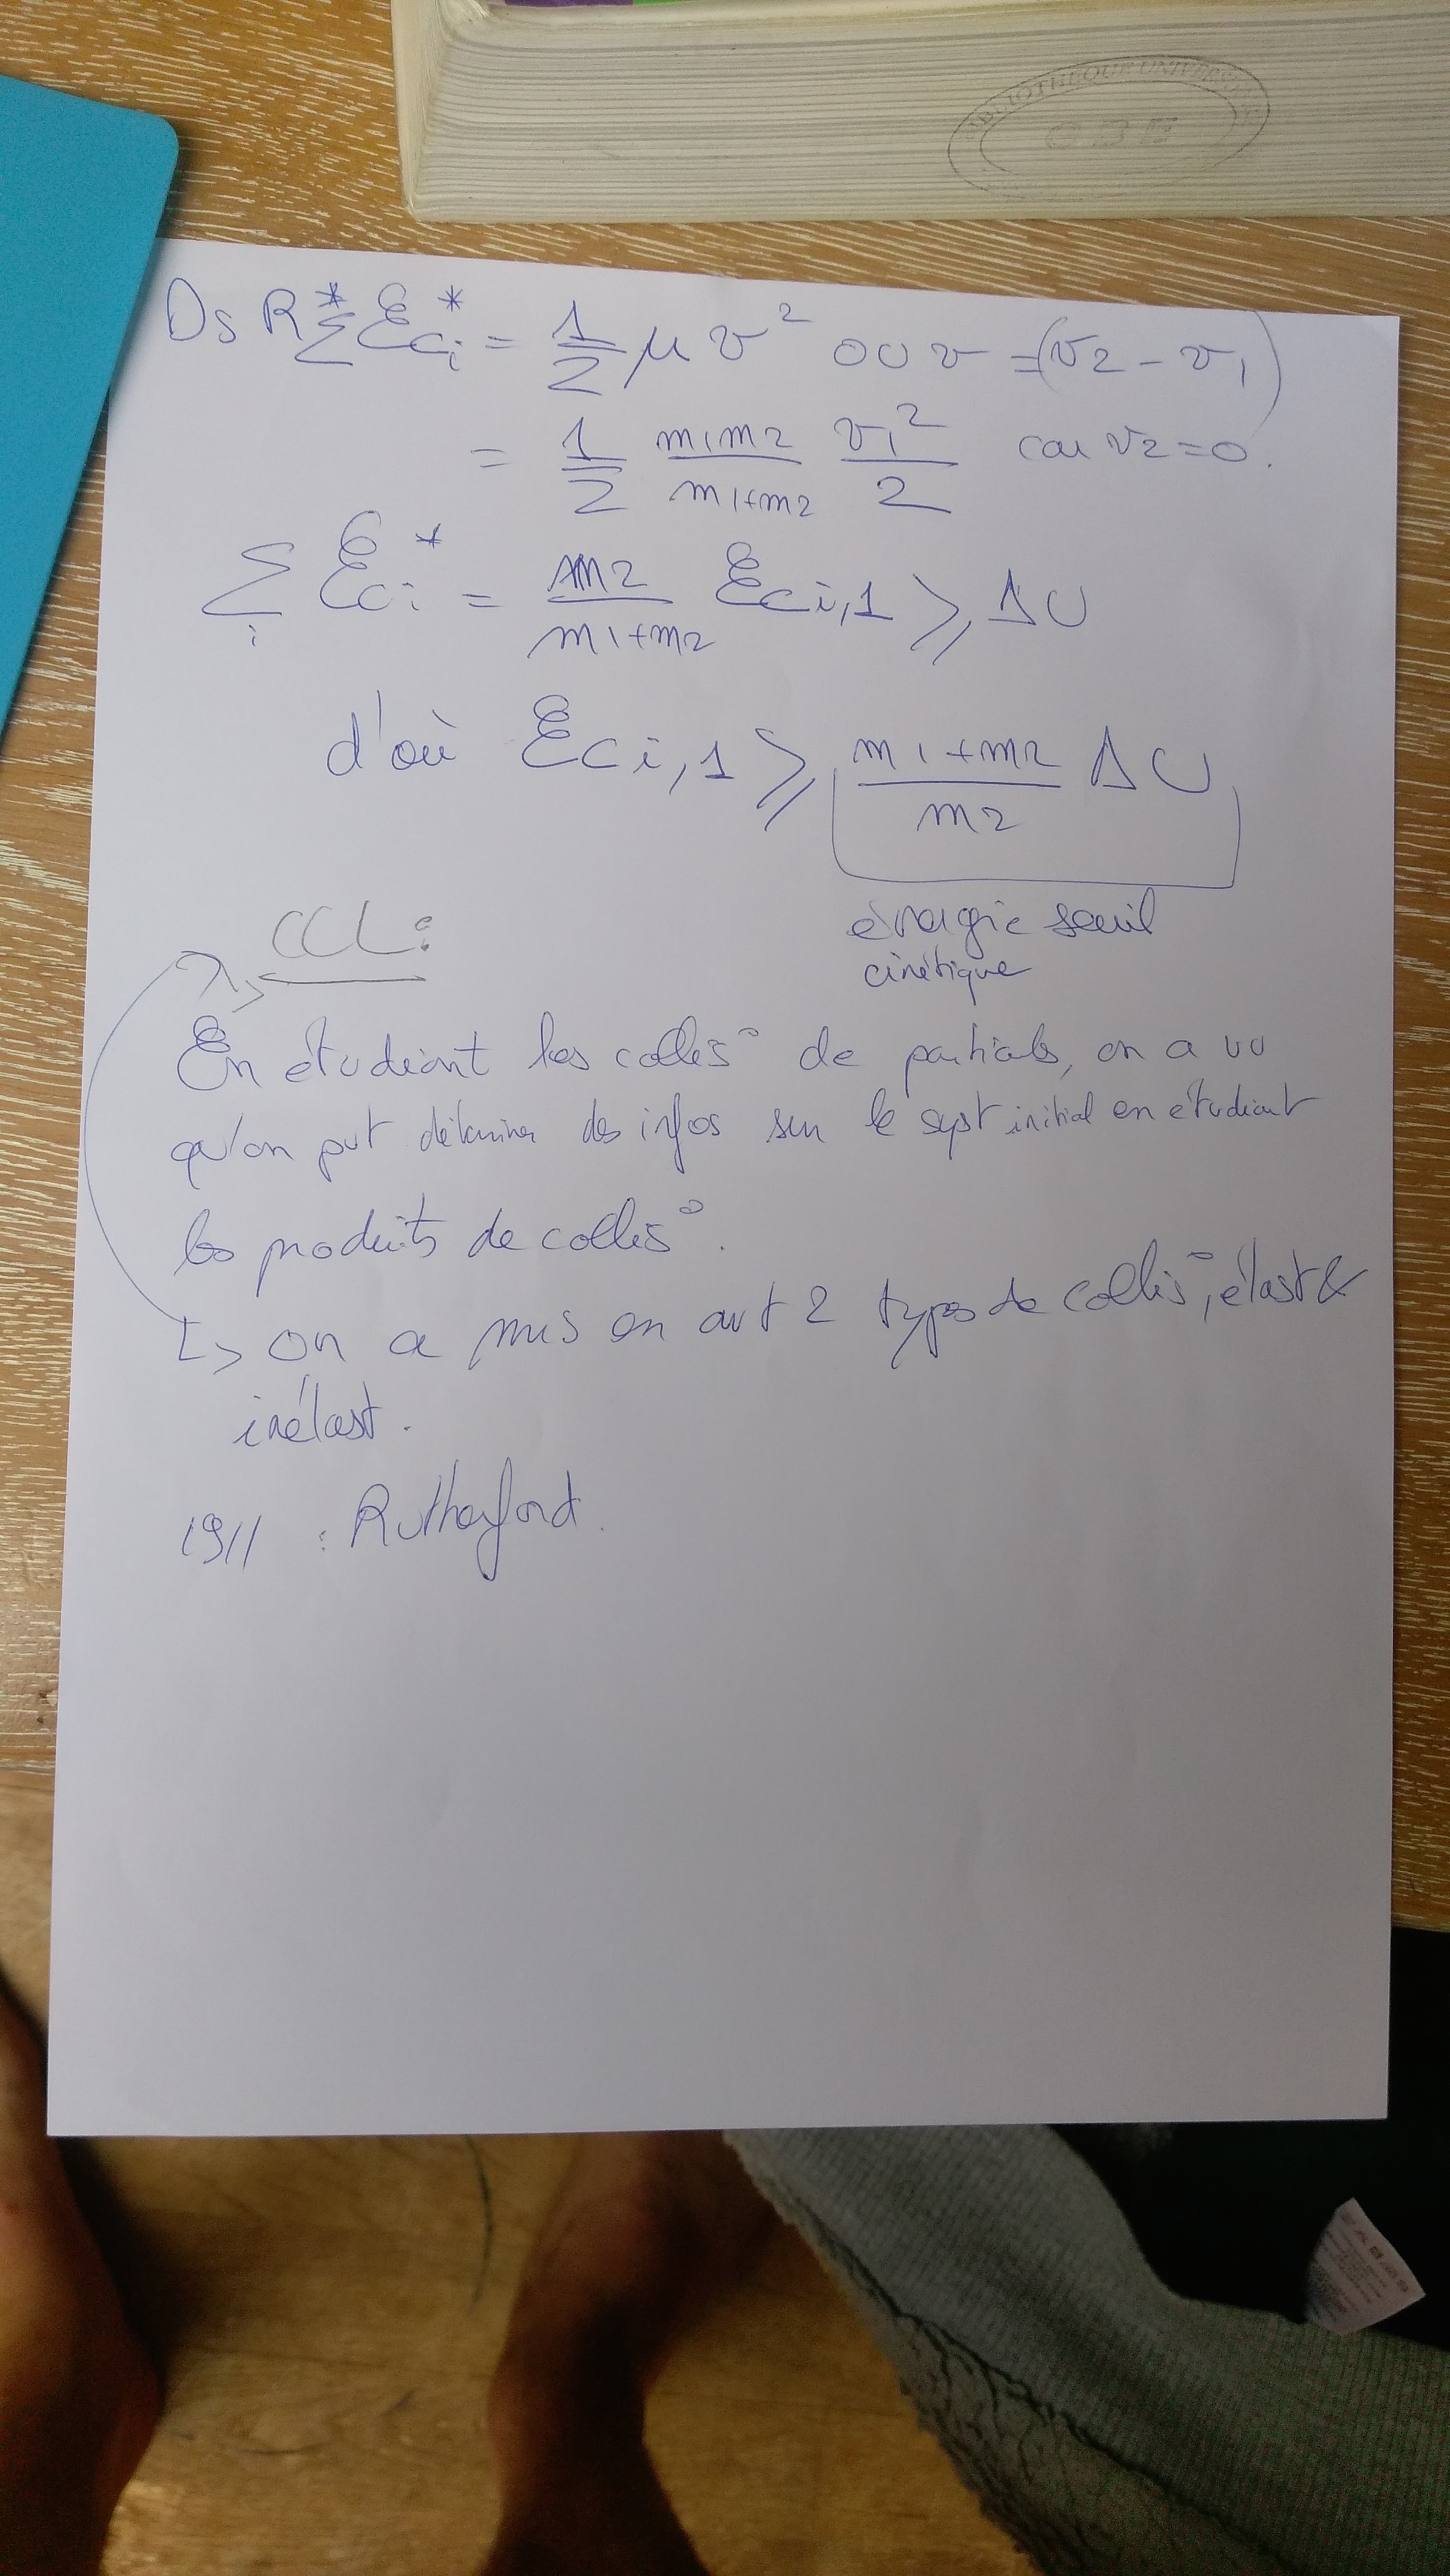 BIBLIOTHEQUE UNIVERS
Ds R* Σ Eci* = 1/2 μ v² où v = (v2 - v1)
= 1/2 m1m2/m1+m2 v1²/2 car v2=0.
Σi Eci* = m2/m1+m2 Eci,1 ⩾ ΔU
d'où Eci,1 ⩾ m1+m2/m2 ΔU
énergie seuil
cinétique
CCL :
En étudiant les collis° de particules, on a vu
qu'on put déterminer des infos sur le syst initial en étudiant
les produits de collis°.
↳ on a mis en avt 2 types de collis°, élast &
inélast.
1911 : Rutherford.